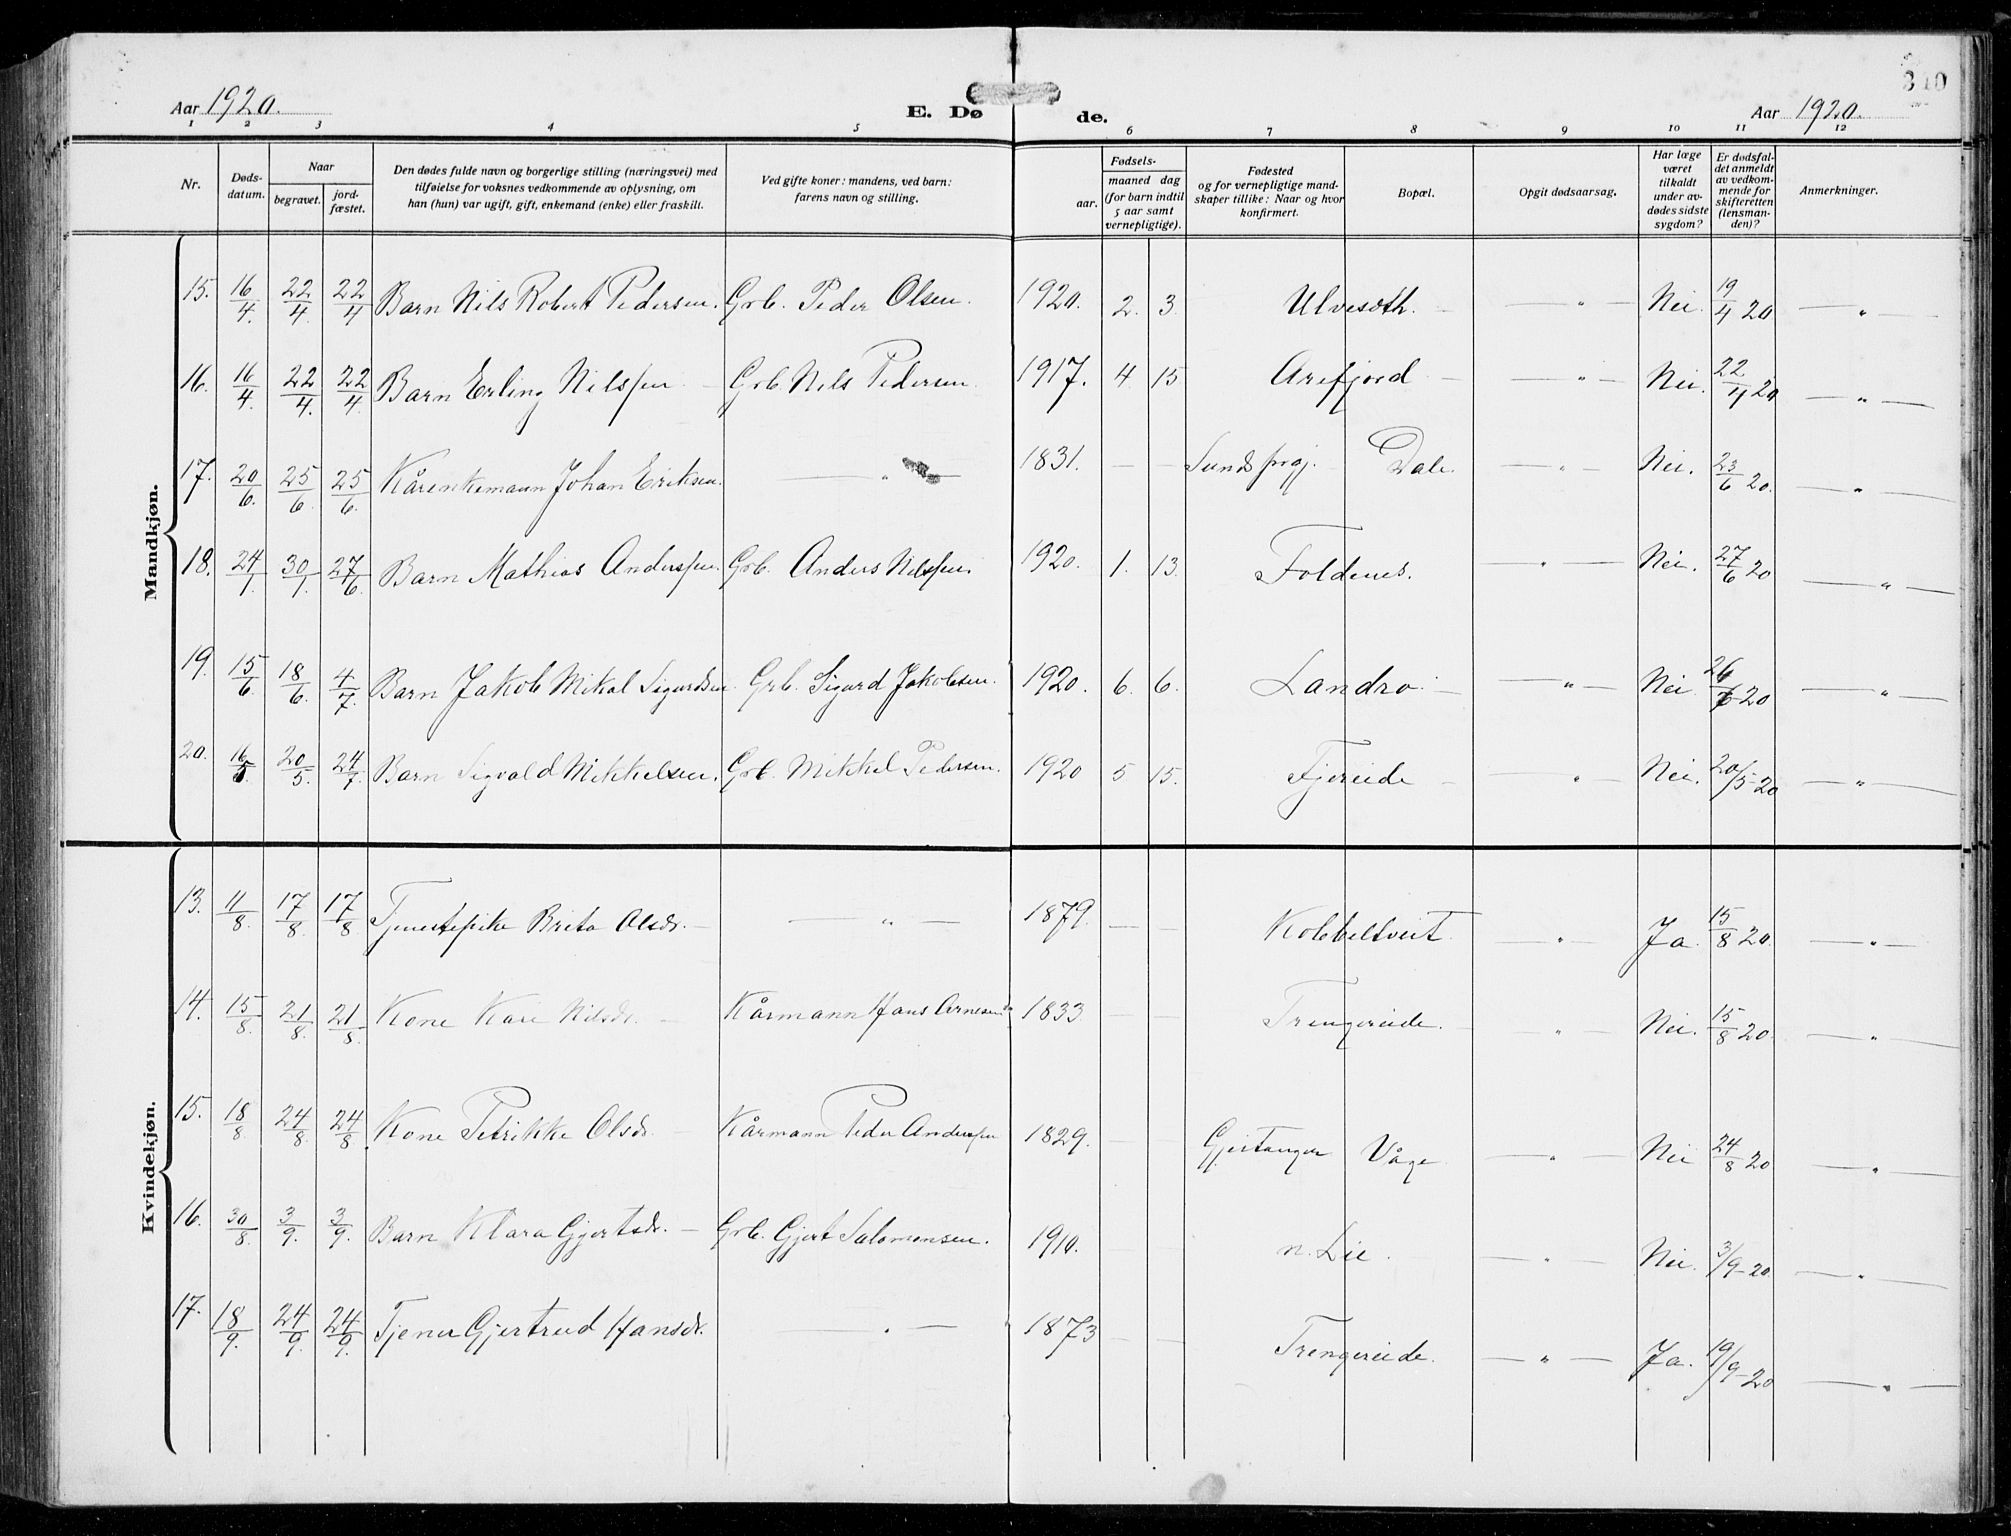 340
Aar 1920.
E. Dø
de.
Aar 1920.
1 2 3 4 5 6 7 8 9 10 11 12
Nr.
Døds-datum.
Naar
begravet.
jord-fæstet.
Den dødes fulde navn og borgerlige stilling (næringsvei) med
tilføielse for voksnes vedkommende av oplysning, om
han (hun) var ugift, gift, enkemand (enke) eller fraskilt.
Ved gifte koner: mandens, ved barn:
farens navn og stilling.
Fødsels-
aar.
maaned dag
(for barn indtil
5 aar samt
vernepligtige).
Fødested
og for vernepligtige mand-
skaper tillike: Naar og hvor
konfirmert.
Bopæl.
Opgit dødsaarsag.
Har læge
været
tilkaldt
under av-
dødes sidste
sygdom?
Er dødsfal-
det anmeldt
av vedkom-
mende for
skifteretten
(lensman-
den)?
Anmerkninger.
Mandkjøn.
15. 16/4. 22/4. 22/4 Barn Nils Robert Pedersen. Grb. Peder Olsen. 1920. 2. 3. Ulvesøth. — " — Nei. 19/4 20 — " —
16. 16/4. 22/4. 22/4. Barn Erling Nilssen — Grb. Nils Pedersen. 1917. 4. 15 Arefjord — — " — Nei. 22/4 20 — " —
17. 20/6. 25/6. 25/6. Kårenkemann Johan Eriksen. — " — 1831. — — Sunds prgj. Dale. — " — Nei. 23/6 20. — " —
18. 24/1. 30/1. 27/6. Barn Mathias Anderssen. Grb. Anders Nilssen. 1920. 1. 13. Foldenes. — " — Nei. 27/6 20 — " —
19. 15/6. 18/6. 4/7. Barn Jakob Mikal Sigurdsen. Grb. Sigurd Jakobsen. 1920. 6. 6. Landro. — — " — Nei 26/6 20 — " —
20. 16/5 20/5. 24/7. Barn Sigvald Mikkelsen. Grb. Mikkel Pedersen. 1920 5 15. Fjereide — — " — Nei. 20/5-20 — " —
Kvindekjøn.
13. 11/8. 17/8. 17/8 Tjenestepike Brita Olsdr. — — " — 1879. — — Kobbeltveit. — " — Ja. 15/8 20. — " —
14. 15/8. 21/8. 21/8. Kone Kari Nilsdr. — Kårmann Hans Arnesen. 1833 — — Trengereide. — — " — Nei. 15/8 20. — " —
15. 18/8 24/8. 24/8. Kone Petrikke Olsdr. — Kårmann Peder Anderssen 1829. — — Gjertanger Våge — " — Nei 24/8 20 — " —
16. 30/8. 3/9. 3/9. Barn Klara Gjertsdr. — Grb. Gjert Salomonsen. 1910. n. Lie. — " — Nei. 3/9-20. — " —
17. 18/9. 24/9. 24/9. Tjener Gjertrud Hansdr. — " — 1873 — — Trengereide. — " — Ja. 19/9-20 — " —